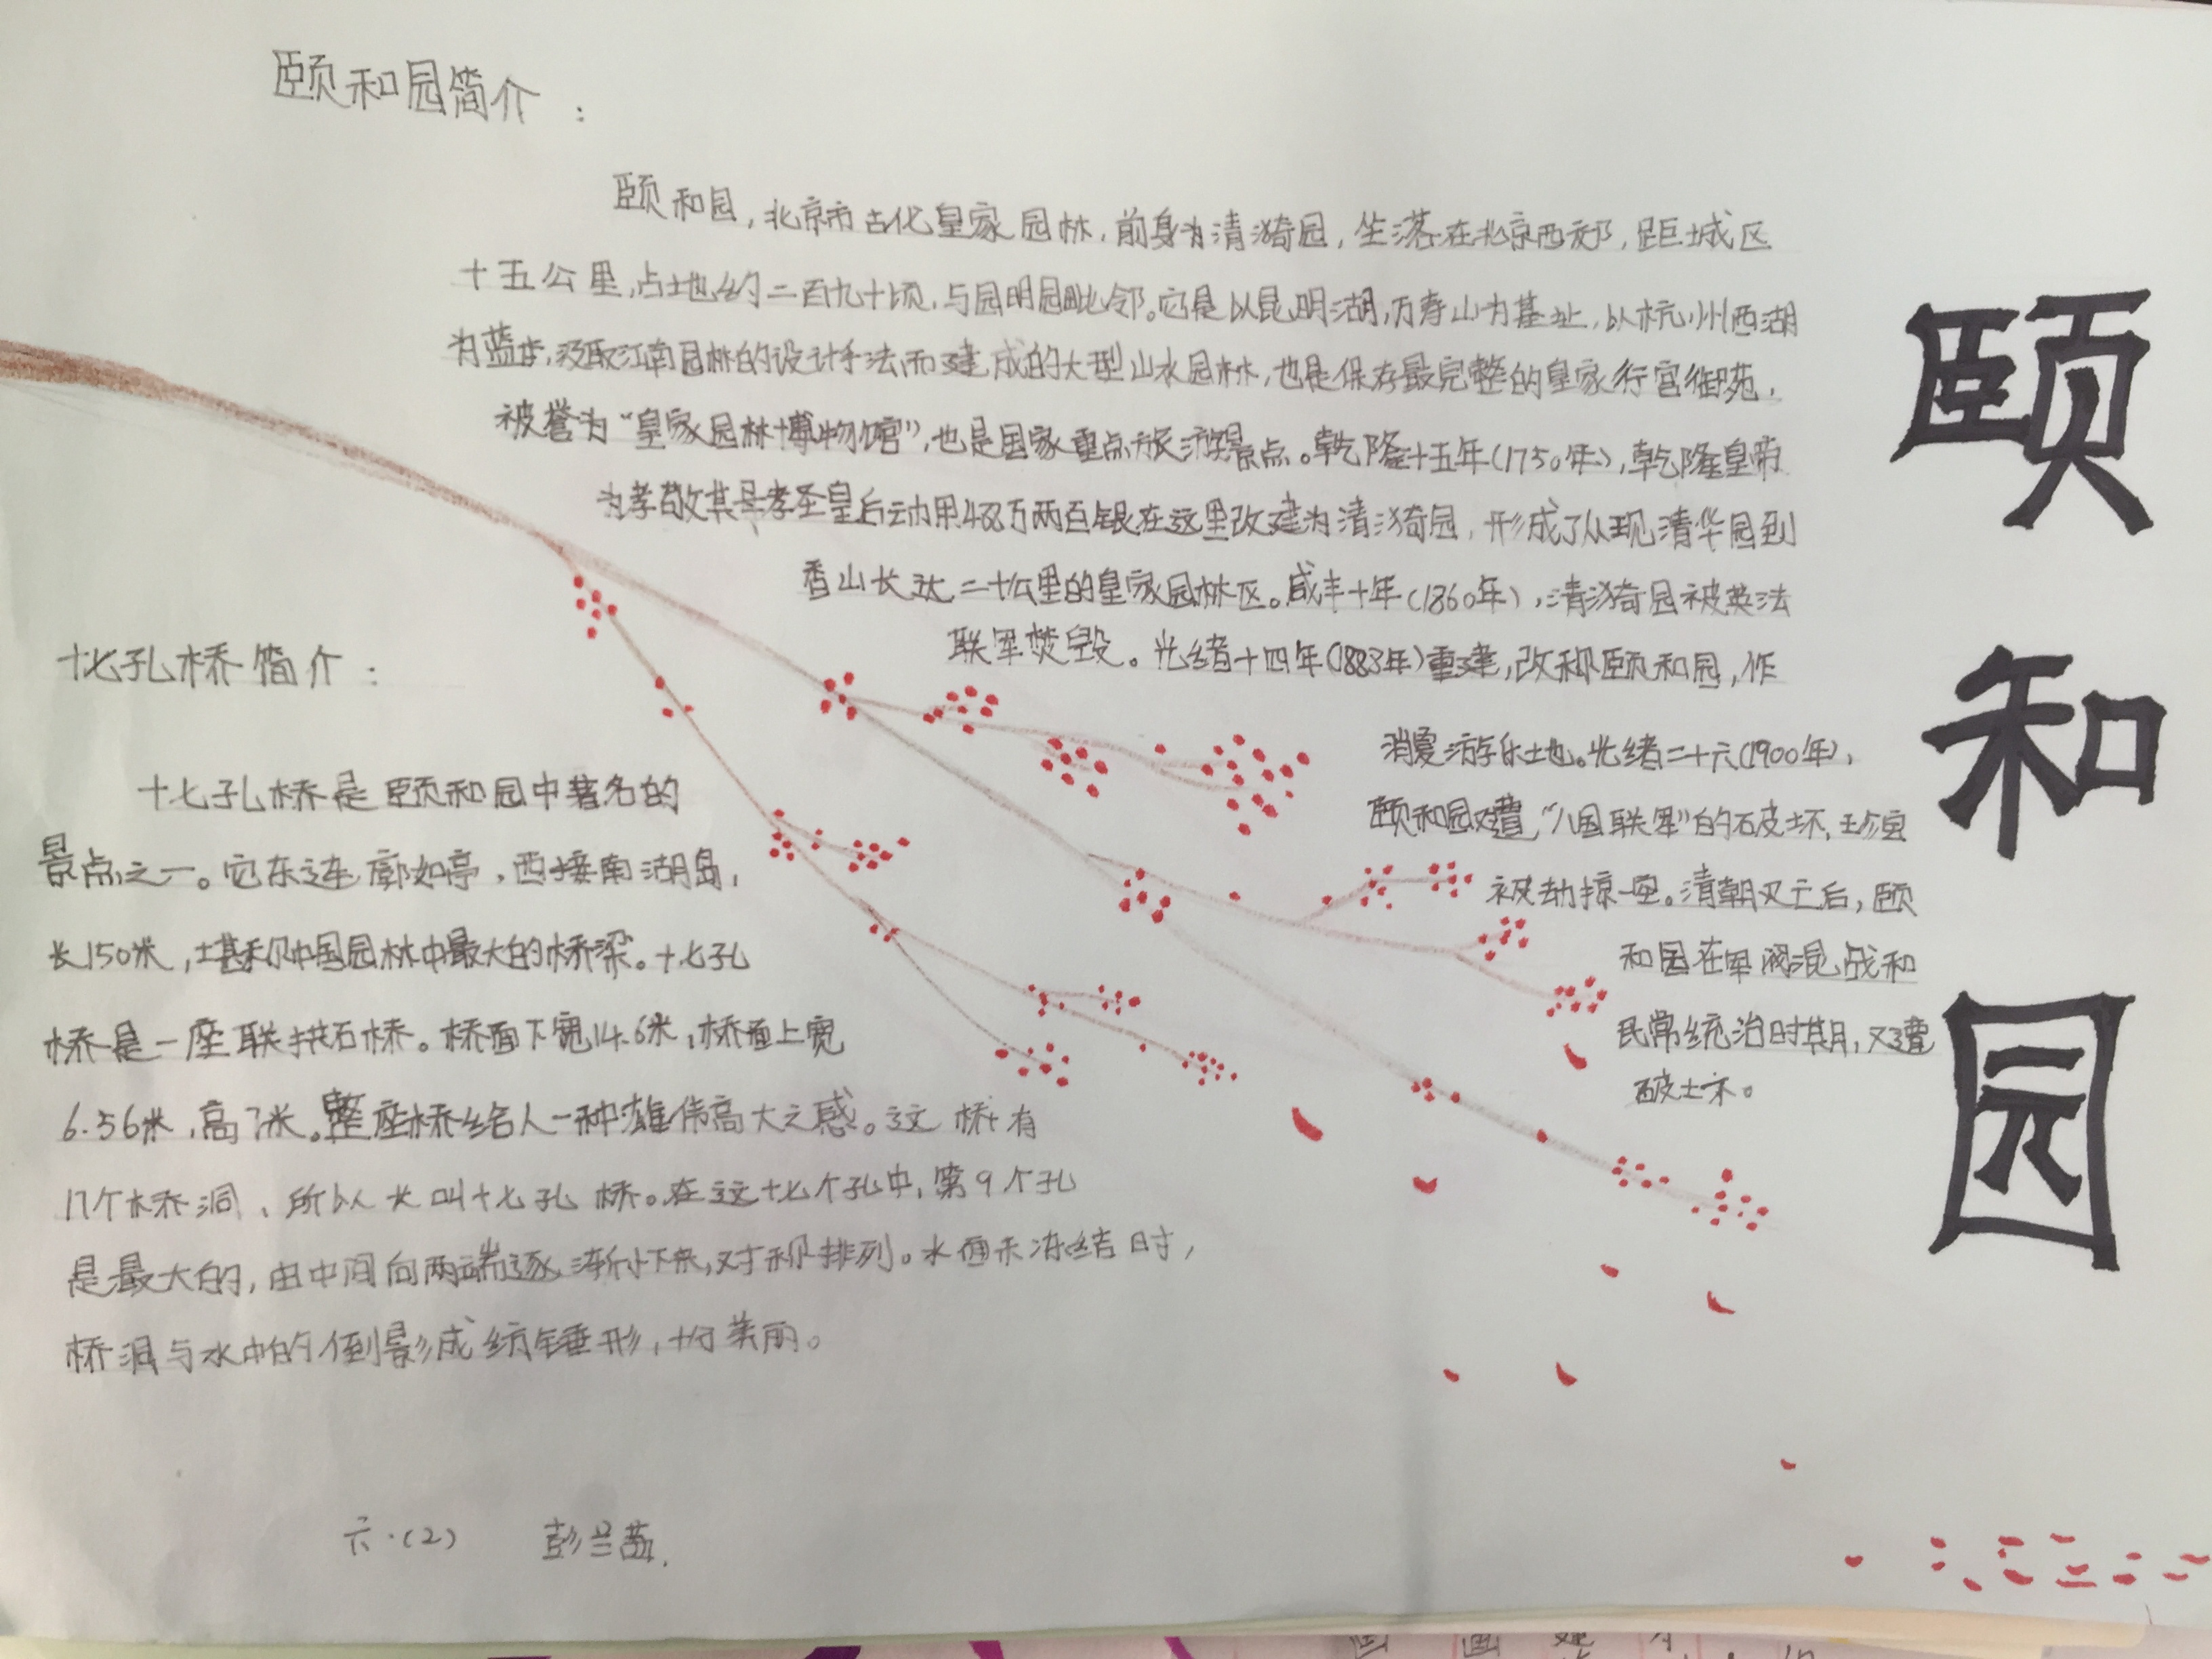 颐和园简介：
颐和园，北京市古代皇家园林，前身为清漪园，坐落在北京西郊，距城区
十五公里，占地约二百九十顷，与园明园毗邻。它是以昆明湖，万寿山为基址，以杭州西湖
为蓝本，汲取江南园林的设计手法而建成的大型山水园林，也是保存最完整的皇家行宫御苑，
被誉为“皇家园林博物馆”，也是国家重点旅游景点。乾隆十五年（1750年），乾隆皇帝
为孝敬其母孝圣皇后动用488万两百银在这里改建为清漪园，形成了从现清华园到
香山长达二十公里的皇家园林区。咸丰十年（1860年），清漪园被英法
联军焚毁。光绪十四年（1883年）重建，改称颐和园，作
消夏游乐地。光绪二十六（1900年），
颐和园又遭“八国联军”的破坏，珍宝
被劫掠一空。清朝又亡后，颐
和园在军阀混战和
民常统治时期，又遭
破坏。
颐和园
十七孔桥简介：
十七孔桥是颐和园中著名的
景点之一。它东连廓如亭，西接南湖岛，
长150米，堪称中国园林中最大的桥梁。十七孔
桥是一座联拱石桥。桥面下宽14.6米，桥面上宽
6.56米，高7米。整座桥给人一种雄伟高大之感。这桥有
17个桥洞，所以长叫十七孔桥。在这十七个孔中，第9个孔
是最大的，由中间向两端逐渐小下来，对称排列。水面未冻结时，
桥洞与水中的倒影成纺锤形，十分美丽。
六·（2） 彭兰